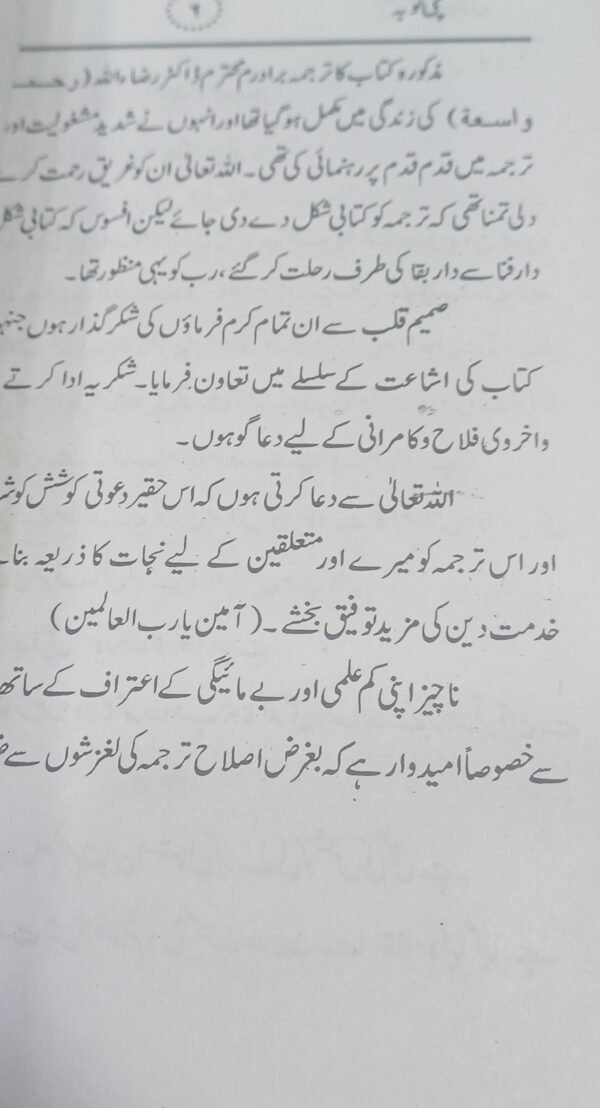 سچی توبہ
۹
مذکورہ کتاب کا ترجمہ برادرم محترم ڈاکٹر رضاء اللہ (رحمہ
واسعۃ) کی زندگی میں مکمل ہوگیا تھا اور انہوں نے شدید مشغولیت اور
ترجمہ میں قدم قدم پر رہنمائی کی تھی۔ اللہ تعالی ان کو غریق رحمت کرے
دلی تمنا تھی کہ ترجمہ کو کتابی شکل دے دی جائے لیکن افسوس کہ کتابی شکل
دار فنا سے دار بقا کی طرف رحلت کر گئے، رب کو یہی منظور تھا۔
صمیم قلب سے ان تمام کرم فرماؤں کی شکر گذار ہوں
کتاب کی اشاعت کے سلسلے میں تعاون فرمایا۔ شکریہ ادا کرتے
واخروی فلاح وکامرانی کے لیے دعا گو ہوں۔
اللہ تعالیٰ سے دعا کرتی ہوں کہ اس حقیر دعوتی کوشش کو
اور اس ترجمہ کو میرے اور متعلقین کے لیے نجات کا ذریعہ
خدمت دین کی مزید توفیق بخشے۔ (آمین یا رب العالمین)
ناچیز اپنی کم علمی اور بے مائیگی کے اعتراف کے ساتھ
سے خصوصاً امیدوار ہے کہ بغرض اصلاح ترجمہ کی لغزشوں سے